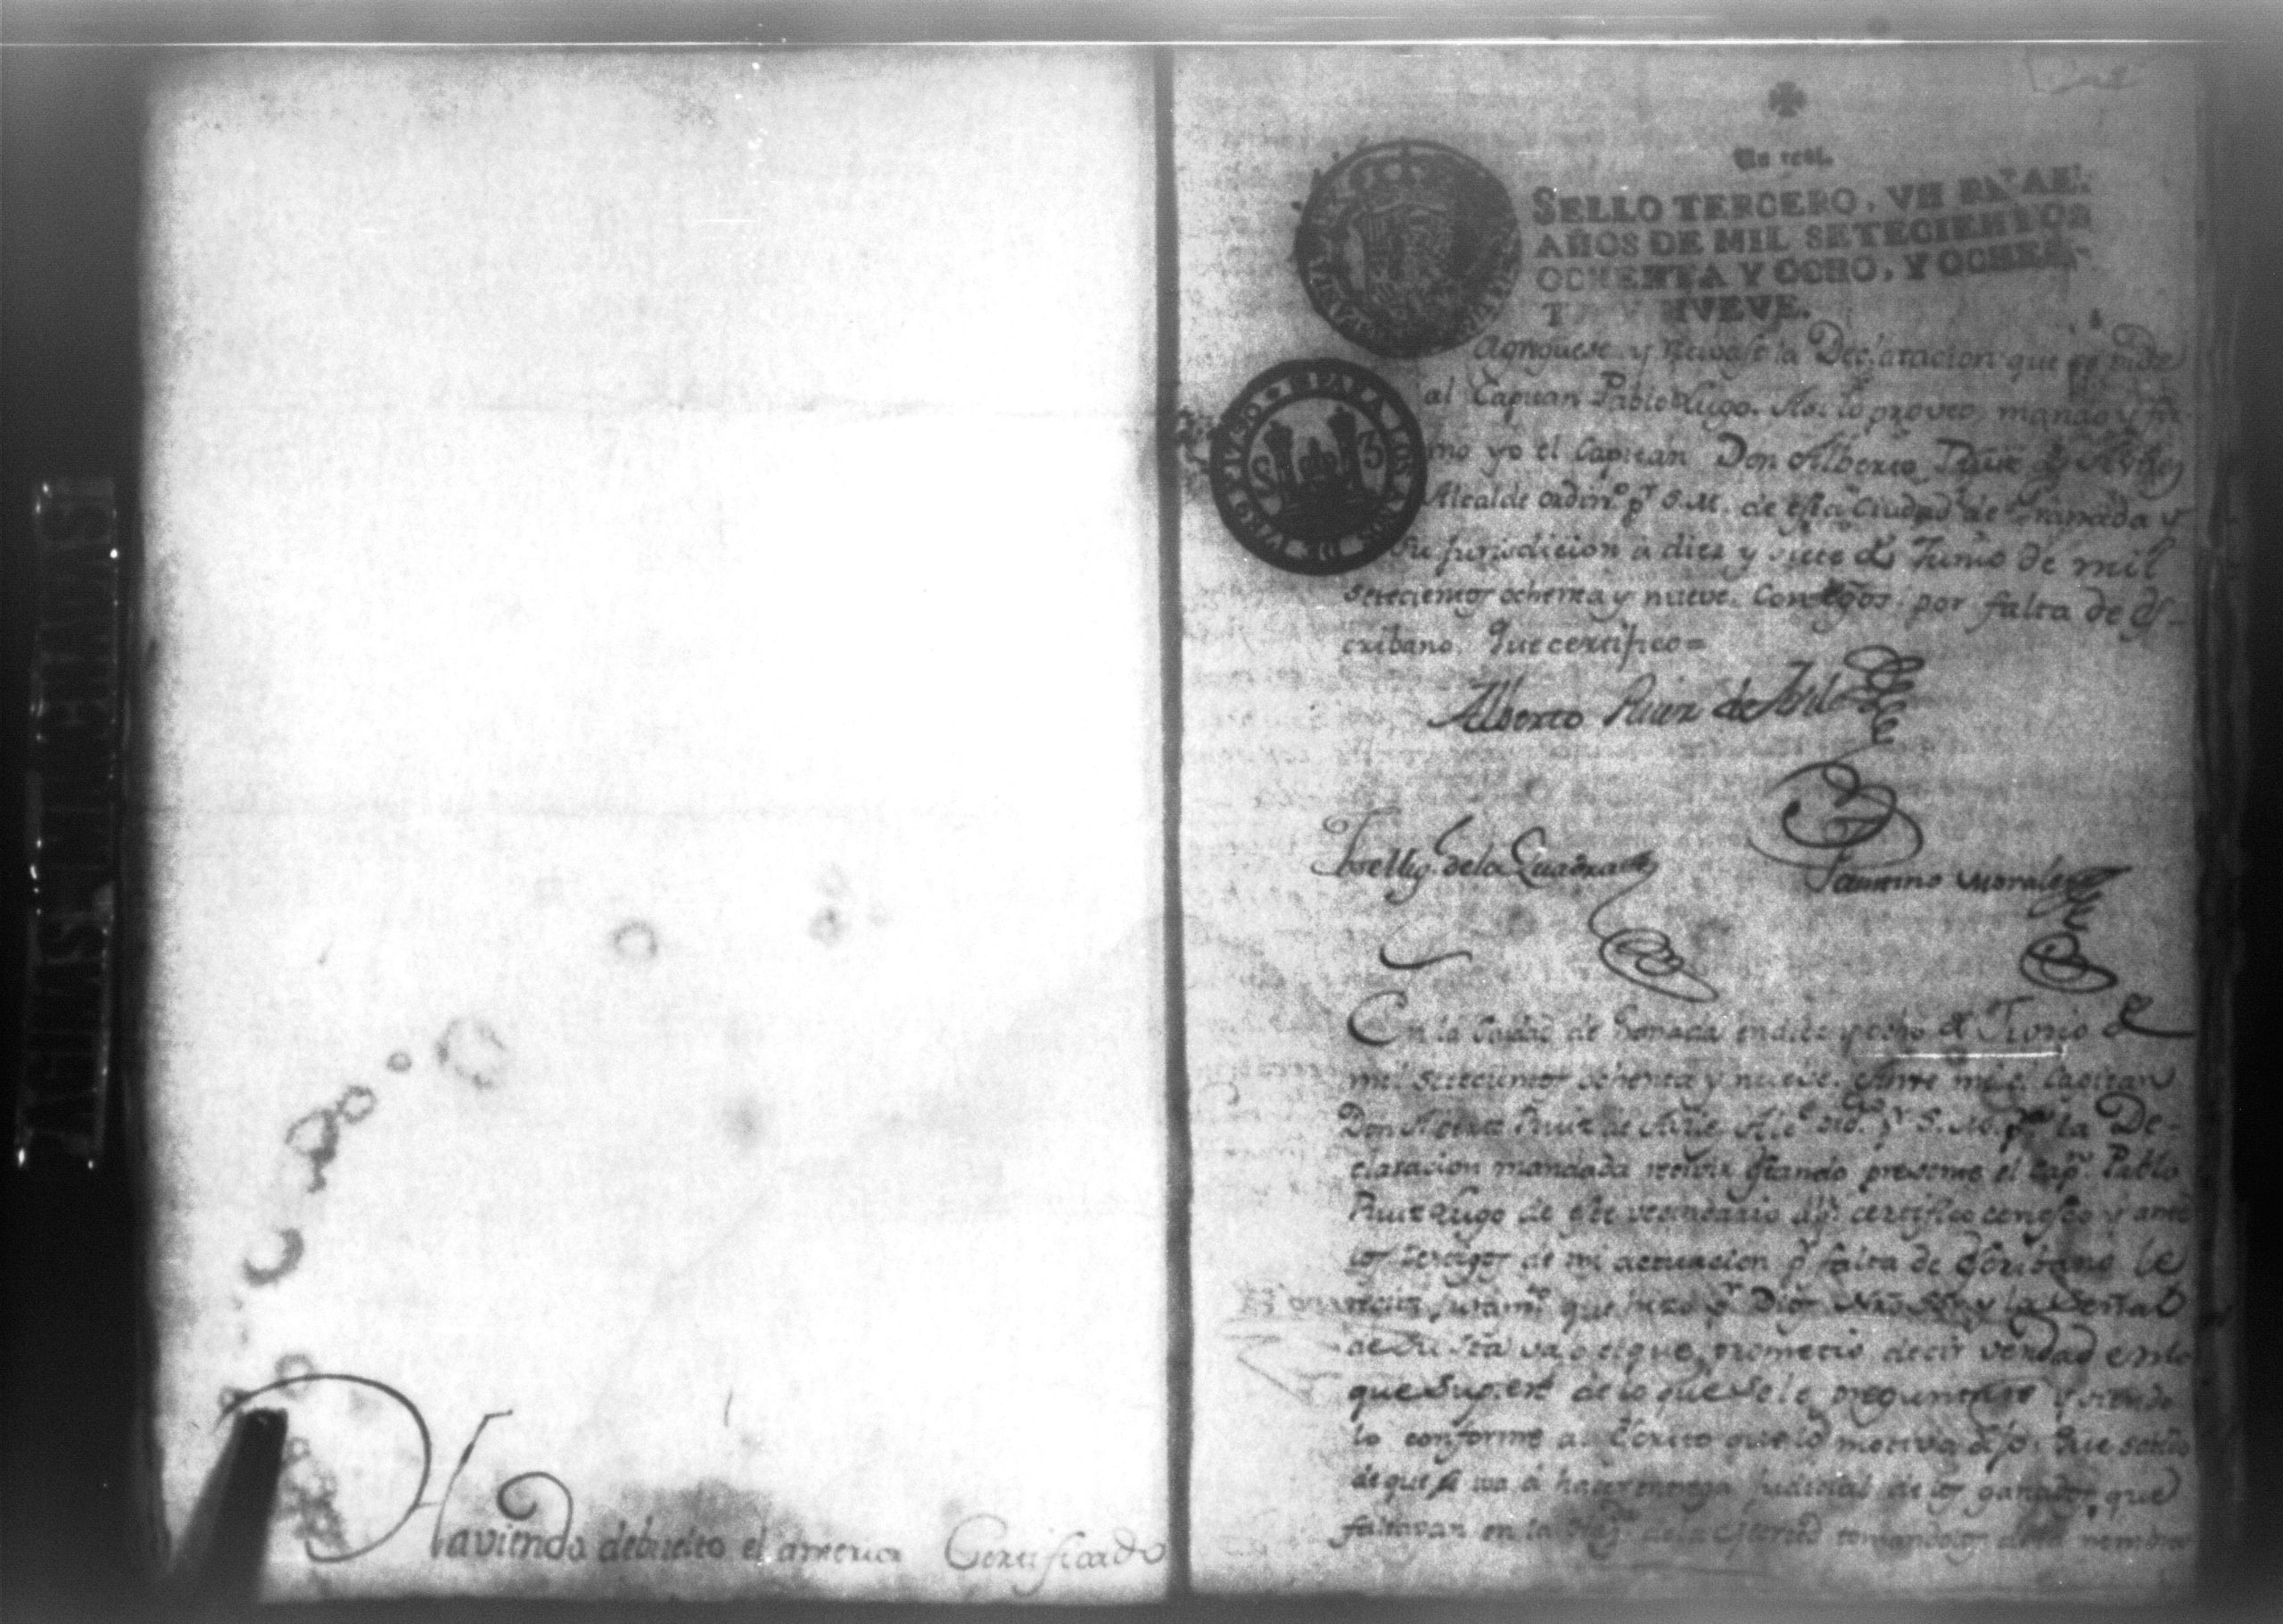 Haviendo debuelto el anterior Certificado
Un real.
SELLO TERCERO, VN REAL
AÑOS DE MIL SETECIENTOS
OCHENTA Y OCHO, Y OCHEN-
TA Y NUEVE.
Agreguese y la Declaracion que se pide
al Capitan Pablo Lugo. Asi lo proveo, mando y fir-
mo yo el Capitan Don Alberto Ruiz de Aviles
Alcalde ordin.o p.r S.M. de esta Ciudad de Granada y
su Jurisdicion à diez y siete de Junio de mil
setecientos ochenta y nueve. Con tgos. por falta de Es-
cribano. Que certifico=
Alberto Ruiz de Aviles
Jose Mig.l de la Quadra
Morales
En la Ciudad de Granada en diez y ocho de Junio de
mil setecientos ochenta y nueve. Ante mi el Capitan
Don Alberto Ruiz de Aviles Alc.e ord.o p.r S.M. p.a la De-
claracion mandada estando presente el Cap.n Pablo
Ruiz Lugo de este vecindario certifico conosco y ante
los testigos de mi actuacion p.r falta de Escribano le
juram.to que hizo p.r Dios Nro Sor y la Señal
de su el que prometio decir verdad en lo
que supiere de lo que se le preguntare y siendo
lo conforme al Escrito que lo motiva
de que se iva à hacer entrega judicial de los ganados que
faltavan en la de la